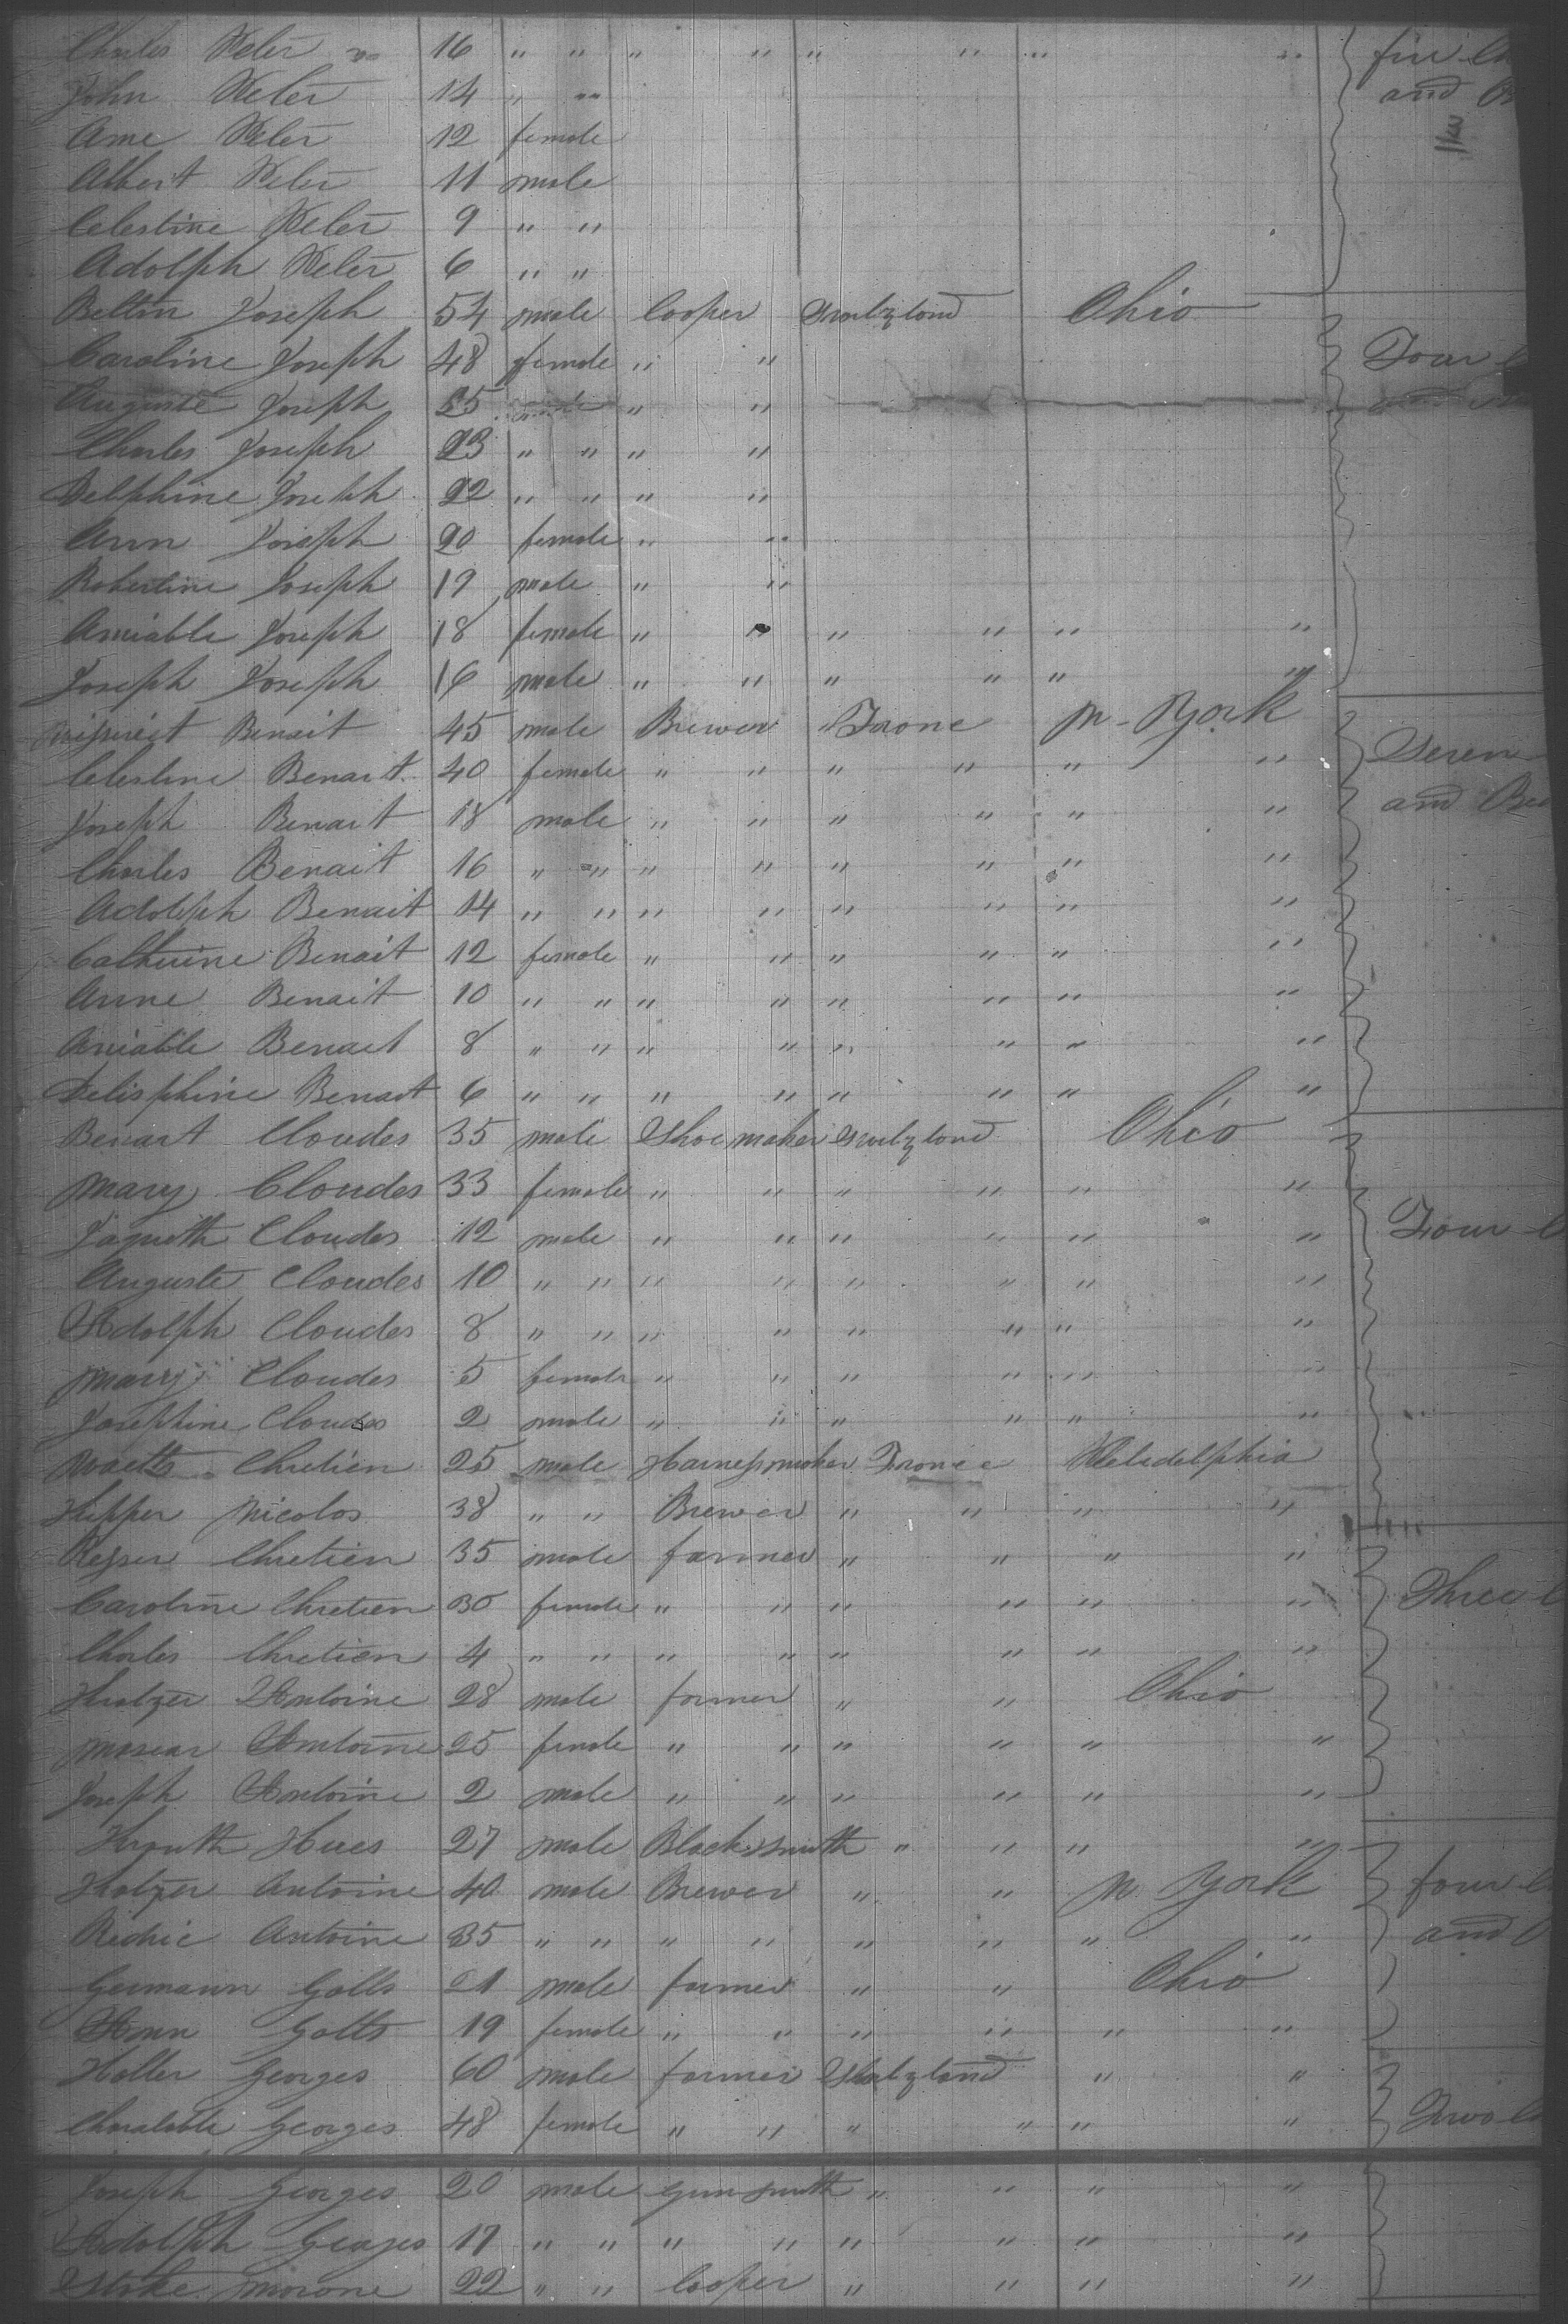 Charles Weler 16 " " " " " " " " five
John Weler 14 " " and
Ame Weler 12 female
Albert Weler 11 male
Celestine Weler 9 " "
Adolph Weler 6 " "
Beltin Joseph 54 male Cooper Switzland Ohio
Caroline Joseph 48 female " " Four
Auguste Joseph 25 male " "
Charles Joseph 23 " " " "
Delphine Joseph 22 " " " "
Ann Joseph 20 female " "
Robertine Joseph 19 male " "
Amiable Joseph 18 female " " " " " "
Joseph Joseph 16 male " " " " " "
Benait 45 male Brewer France N-York
Celestine Benait 40 female " " " " " " Seven
Joseph Benait 18 male " " " " " " and
Charles Benait 16 " " " " " " " "
Adolph Benait 14 " " " " " " " "
Catherine Benait 12 female " " " " " "
Anne Benait 10 " " " " " " " "
Amiable Benait 8 " " " " " " " "
Delisphine Benait 6 " " " " " " " "
Benart Cloudes 35 male Shoemaker Switzland Ohio
Mary Cloudes 33 female " " " " " "
Jaquith Cloudes 12 male " " " " " " Four
Auguste Cloudes 10 " " " " " " " "
Adolph Cloudes 8 " " " " " " " "
Mary Cloudes 5 female " " " " " "
Josephine Cloudes 2 male " " " " " "
Chretien 25 male Harnessmaker France Feledelphia
Hepper Nicolos 38 " " Brewer " " " "
Resser Chretien 35 male farmer " " " "
Caroline Chretien 30 female " " " " " " Three
Charles Chretien 4 " " " " " " " "
Antoine 28 male farmer " " Ohio
Antoine 25 female " " " " " "
Joseph Antoine 2 male " " " " " "
Hues 27 male Blacksmith " " " "
Holzer Antoine 40 male Brewer " " N. York four
Antoine 35 " " " " " " " " and
Germann Golls 21 male farmer " " Ohio
Ann Golls 19 female " " " " " "
Holler Georges 60 male farmer Switzland " "
Georges 48 female " " " " " " Two
Joseph Georges 20 male gunsmith " " " "
Adolph Georges 17 " " " " " " " "
22 " " Cooper " " " "